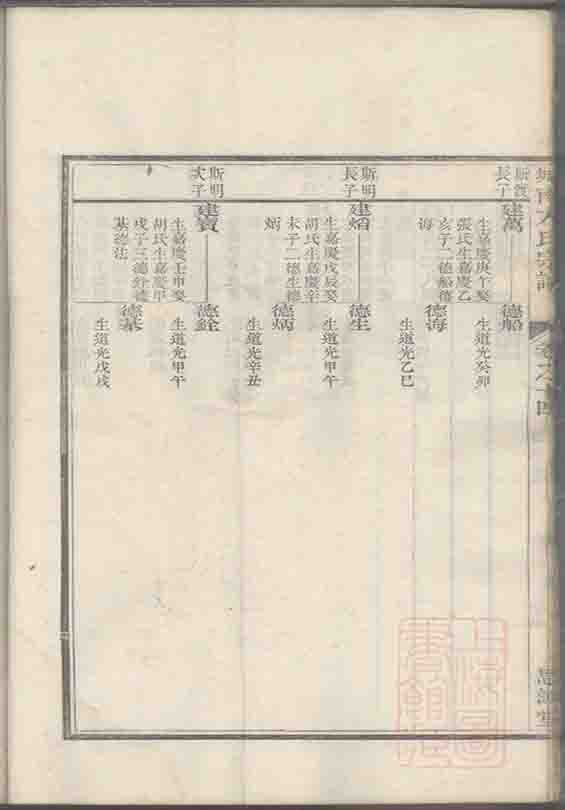 斯寶長子
建萬
生嘉慶庚午娶
張氏生嘉慶乙
亥子二德船德
海
德船
生道光癸卯
德海
生道光乙巳
斯明長子
建熖
生嘉慶戊辰娶
胡氏生嘉慶辛
未子二德生德
炳
德生
生道光甲午
德炳
生道光辛丑
斯明次子
建寶
生嘉慶壬申娶
胡氏生嘉慶甲
戌子三德銓德
基德法
德銓
生道光甲午
德基
生道光戊戌
上海圖書館藏